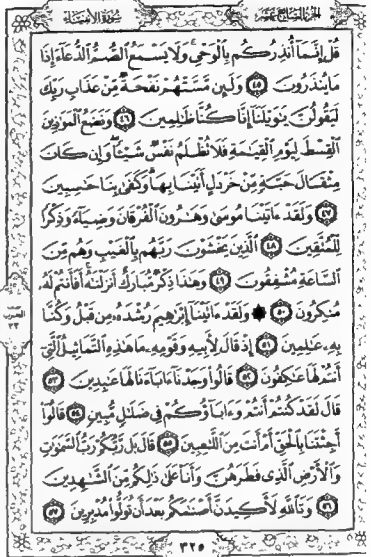 الجزء السابع عشر سورة الأنبياء
قُلْ إِنَّمَآ أُنذِرُكُم بِٱلْوَحْىِ ۚ وَلَا يَسْمَعُ ٱلصُّمُّ ٱلدُّعَآءَ إِذَا
مَا يُنذَرُونَ ٤٥ وَلَئِن مَّسَّتْهُمْ نَفْحَةٌ مِّنْ عَذَابِ رَبِّكَ
لَيَقُولُنَّ يَٰوَيْلَنَآ إِنَّا كُنَّا ظَٰلِمِينَ ٤٦ وَنَضَعُ ٱلْمَوَٰزِينَ
ٱلْقِسْطَ لِيَوْمِ ٱلْقِيَٰمَةِ فَلَا تُظْلَمُ نَفْسٌ شَيْـًٔا ۖ وَإِن كَانَ
مِثْقَالَ حَبَّةٍ مِّنْ خَرْدَلٍ أَتَيْنَا بِهَا ۗ وَكَفَىٰ بِنَا حَٰسِبِينَ
٤٧ وَلَقَدْ ءَاتَيْنَا مُوسَىٰ وَهَٰرُونَ ٱلْفُرْقَانَ وَضِيَآءً وَذِكْرًا
لِّلْمُتَّقِينَ ٤٨ ٱلَّذِينَ يَخْشَوْنَ رَبَّهُم بِٱلْغَيْبِ وَهُم مِّنَ
ٱلسَّاعَةِ مُشْفِقُونَ ٤٩ وَهَٰذَا ذِكْرٌ مُّبَارَكٌ أَنزَلْنَٰهُ ۚ أَفَأَنتُمْ لَهُۥ
مُنكِرُونَ ٥٠ ۞ وَلَقَدْ ءَاتَيْنَآ إِبْرَٰهِيمَ رُشْدَهُۥ مِن قَبْلُ وَكُنَّا
بِهِۦ عَٰلِمِينَ ٥١ إِذْ قَالَ لِأَبِيهِ وَقَوْمِهِۦ مَا هَٰذِهِ ٱلتَّمَاثِيلُ ٱلَّتِىٓ
أَنتُمْ لَهَا عَٰكِفُونَ ٥٢ قَالُوا۟ وَجَدْنَآ ءَابَآءَنَا لَهَا عَٰبِدِينَ ٥٣
قَالَ لَقَدْ كُنتُمْ أَنتُمْ وَءَابَآؤُكُمْ فِى ضَلَٰلٍ مُّبِينٍ ٥٤ قَالُوٓا۟
أَجِئْتَنَا بِٱلْحَقِّ أَمْ أَنتَ مِنَ ٱللَّٰعِبِينَ ٥٥ قَالَ بَل رَّبُّكُمْ رَبُّ ٱلسَّمَٰوَٰتِ
وَٱلْأَرْضِ ٱلَّذِى فَطَرَهُنَّ وَأَنَا۠ عَلَىٰ ذَٰلِكُم مِّنَ ٱلشَّٰهِدِينَ
٥٦ وَتَٱللَّهِ لَأَكِيدَنَّ أَصْنَٰمَكُم بَعْدَ أَن تُوَلُّوا۟ مُدْبِرِينَ ٥٧
الحزب
٣٣
٣٢٥